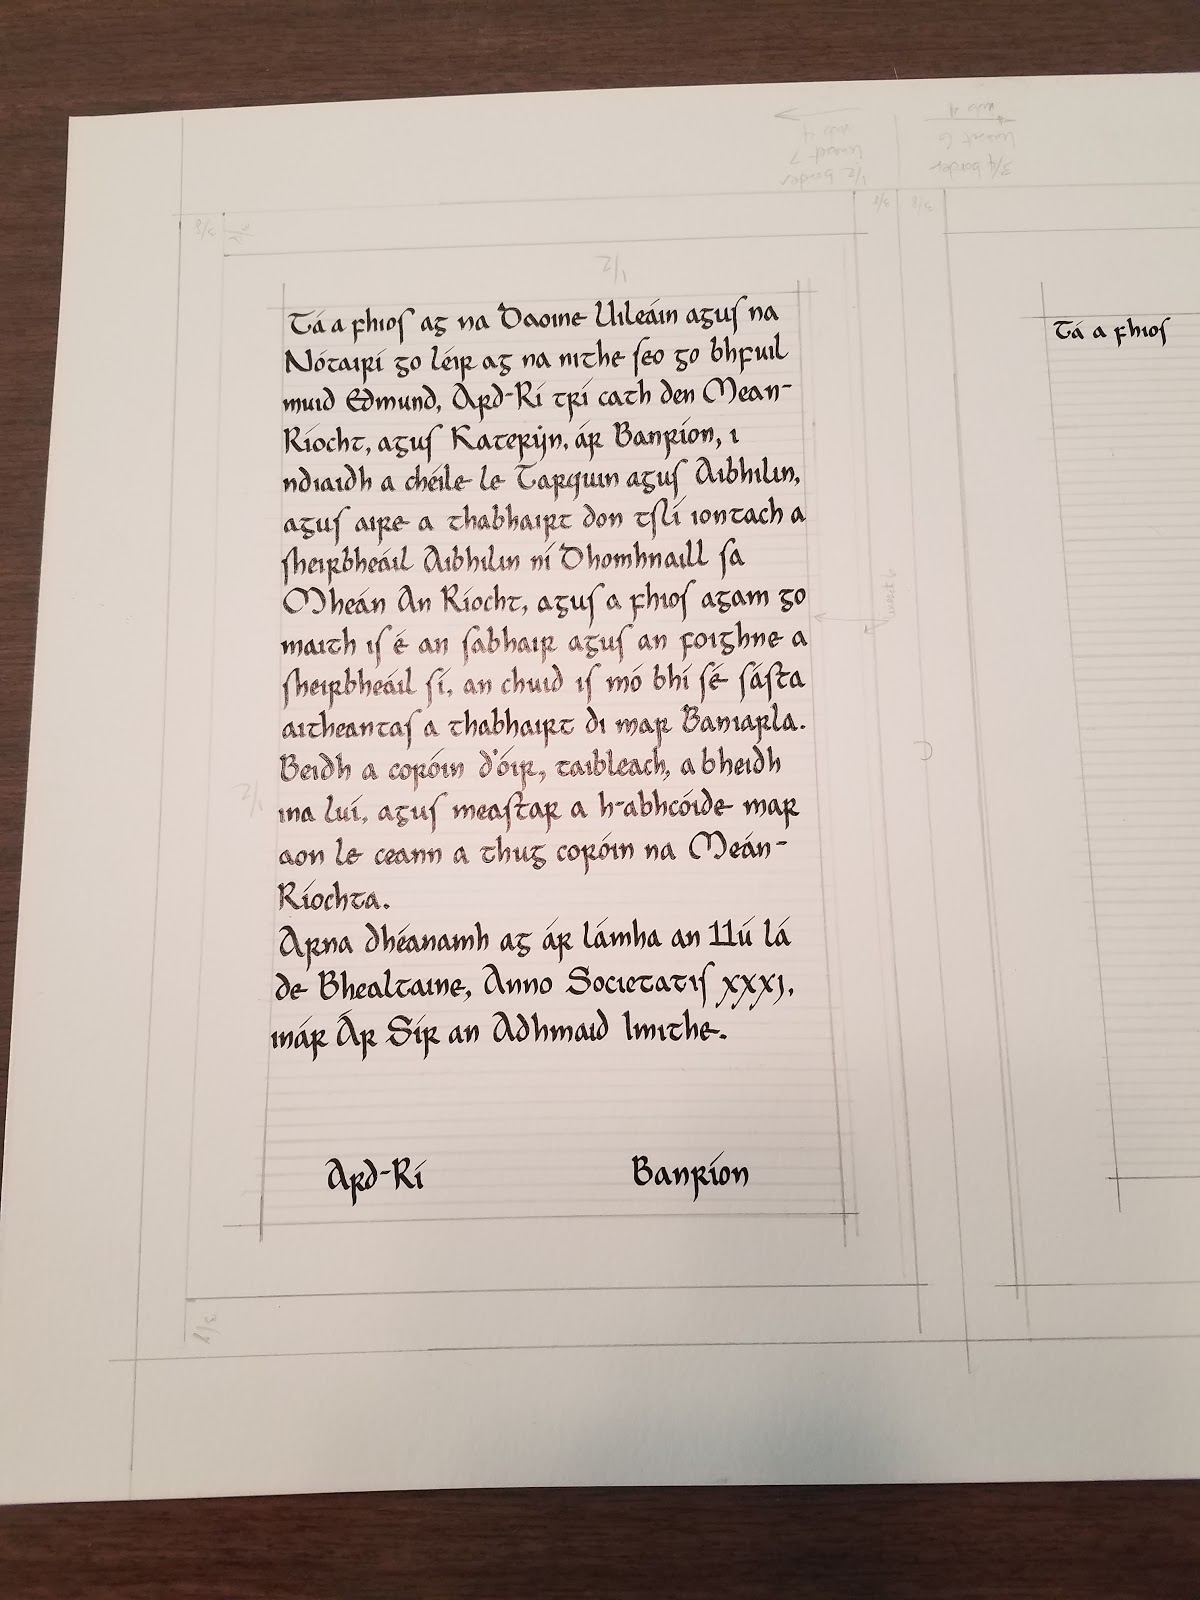 Tá a fhios ag na Daoine Uileáin agus na
Nótairí go léir ag na nithe seo go bhfuil
muid Edmund, Ard-Rí trí cath den Mean-
Ríocht, agus Katerijn, ár Banríon, i
ndiaidh a chéile le Tarquin agus Aibhilin,
agus aire a thabhairt don tslí iontach a
sheirbheáil Aibhilin ní Dhomhnaill sa
Mheán An Ríocht, agus a fhios agam go
maith is é an sabhair agus an foighne a
sheirbheáil sí, an chuid is mó bhí sé sásta
aitheantas a thabhairt di mar Baniarla.
Beidh a coróin d'óir, taibleach, a bheidh
ina luí, agus meastar a h-abhcóide mar
aon le ceann a thug coróin na Meán-
Ríochta.
Arna dhéanamh ag ár lámha an 11ú lá
de Bhealtaine, Anno Societatis xxxj,
inár Ár Sír an Adhmaid Imithe.
Ard-Rí Banríon
Tá a fhios
1/2 border
3/4 border
1/2
1/2
3/8
3/8
3/8